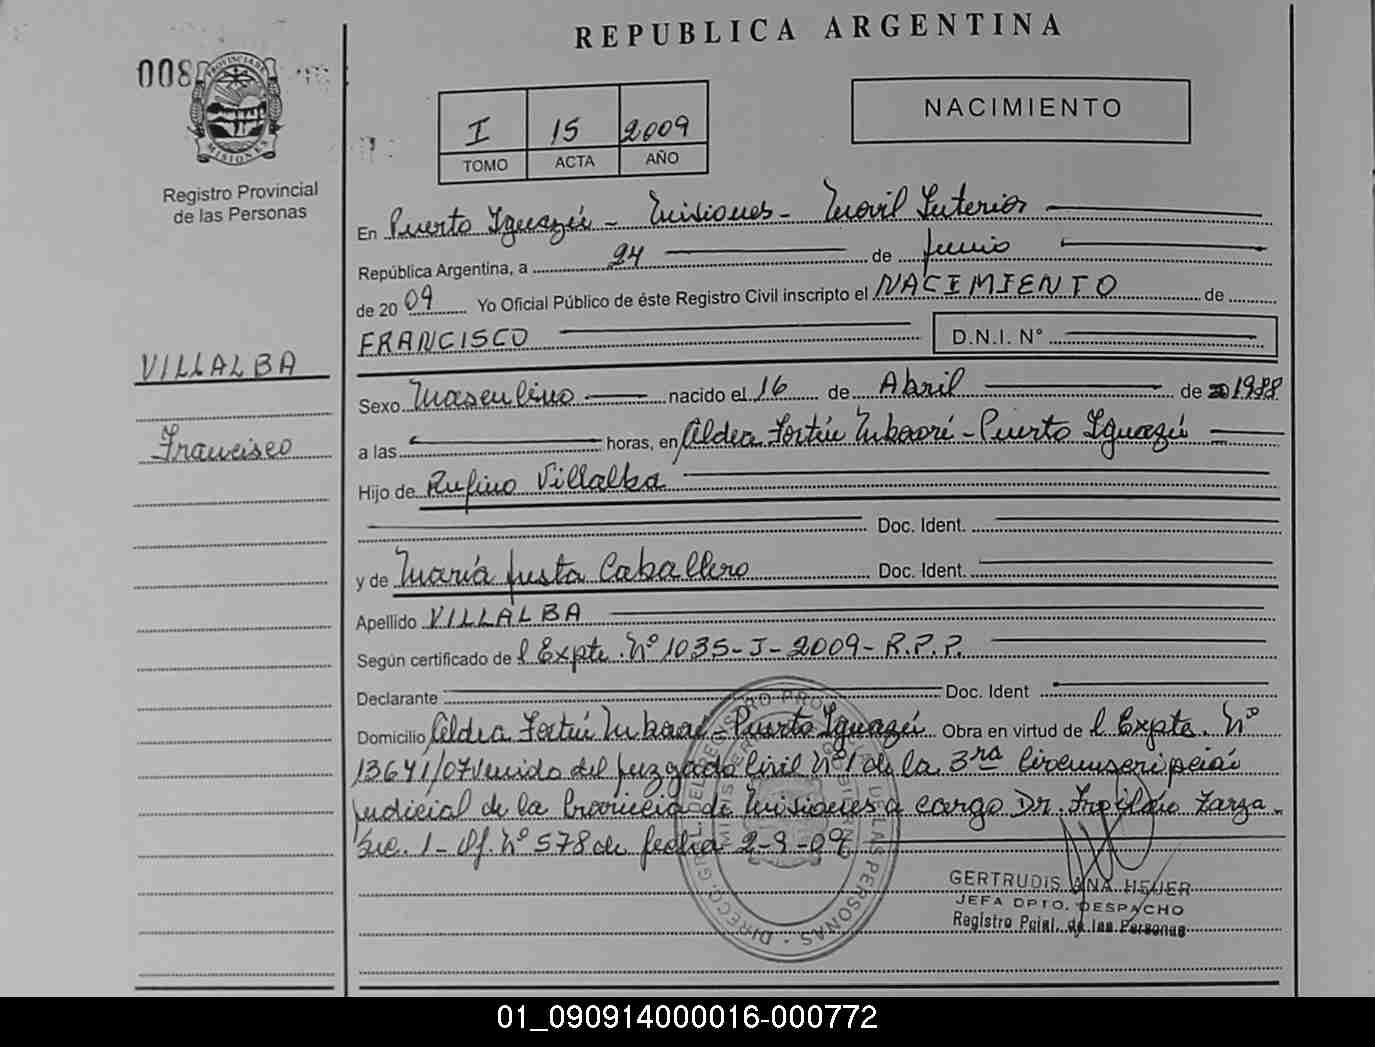 REPUBLICA ARGENTINA
008
PROVINCIA DE MISIONES
Registro Provincial
de las Personas
I 15 2009
TOMO ACTA AÑO
NACIMIENTO
En Puerto Iguazú - Misiones - Movil Interior
República Argentina, a 24 de junio
de 2009 Yo Oficial Público de éste Registro Civil inscripto el NACIMIENTO de
FRANCISCO D.N.I. N°
VILLALBA
Francisco
Sexo Masculino nacido el 16 de Abril de 1988
a las horas, en Aldea Fortín Mbororé - Puerto Iguazú
Hijo de Rufino Villalba
Doc. Ident.
y de María Justa Caballero Doc. Ident.
Apellido VILLALBA
Según certificado de l Expte. N° 1035-J-2009-R.P.P.
Declarante Doc. Ident
Domicilio Aldea Fortín Mbororé - Puerto Iguazú Obra en virtud de l Expte. N°
13641/07 venido del Juzgado Civil N° 1 de la 3ra Circunscripción
Judicial de la Provincia de Misiones a cargo Dr.
Sec. 1 - Of. N° 578 de fecha 2-9-09
GERTRUDIS ANA HEUER
JEFA DPTO. DESPACHO
Registro Pcial. de las Personas
01_090914000016-000772